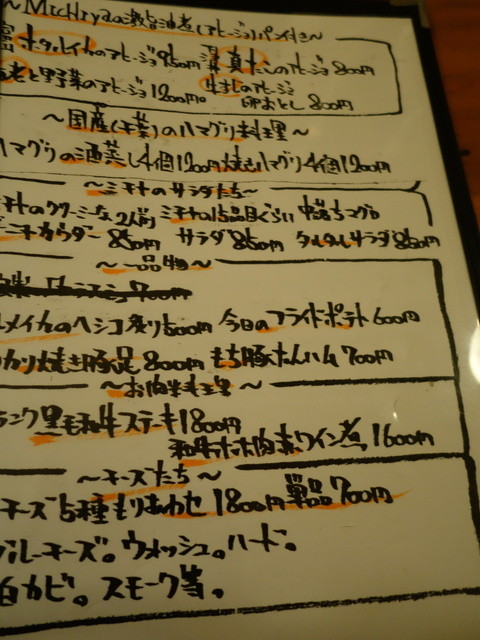 ～Michiyaの激旨油煮(アヒージョ)パン付き～
ホタルイカのアヒージョ950円 真だこのアヒージョ800円
老と野菜のアヒージョ1200円。 生すじのアヒージョ
卵おとし 800円
～国産(千葉)のハマグリ料理～
ハマグリの酒蒸し4個1200円 焼きハマグリ4個1200円
～ミチヤのサラダたち～
チヤのクリーミーな2人前 ミチヤの15品目ぐらい 中落ちマグロ
ーニャカウダー 850円 サラダ850円 タルタルサラダ850円
～一品物～
700円
メイカのヘシコ炙り500円 今日のフライドポテト600円
カリ焼き豚足800円 もち豚たんハム700円
～お肉料理～
ランク黒毛和牛ステーキ1800円
和牛ホホ肉赤ワイン煮 1600円
～チーズたち～
チーズ5種もりあわせ 1800円 単品700円
ブルーチーズ。ウォッシュ。ハード。
白カビ。スモーク等。